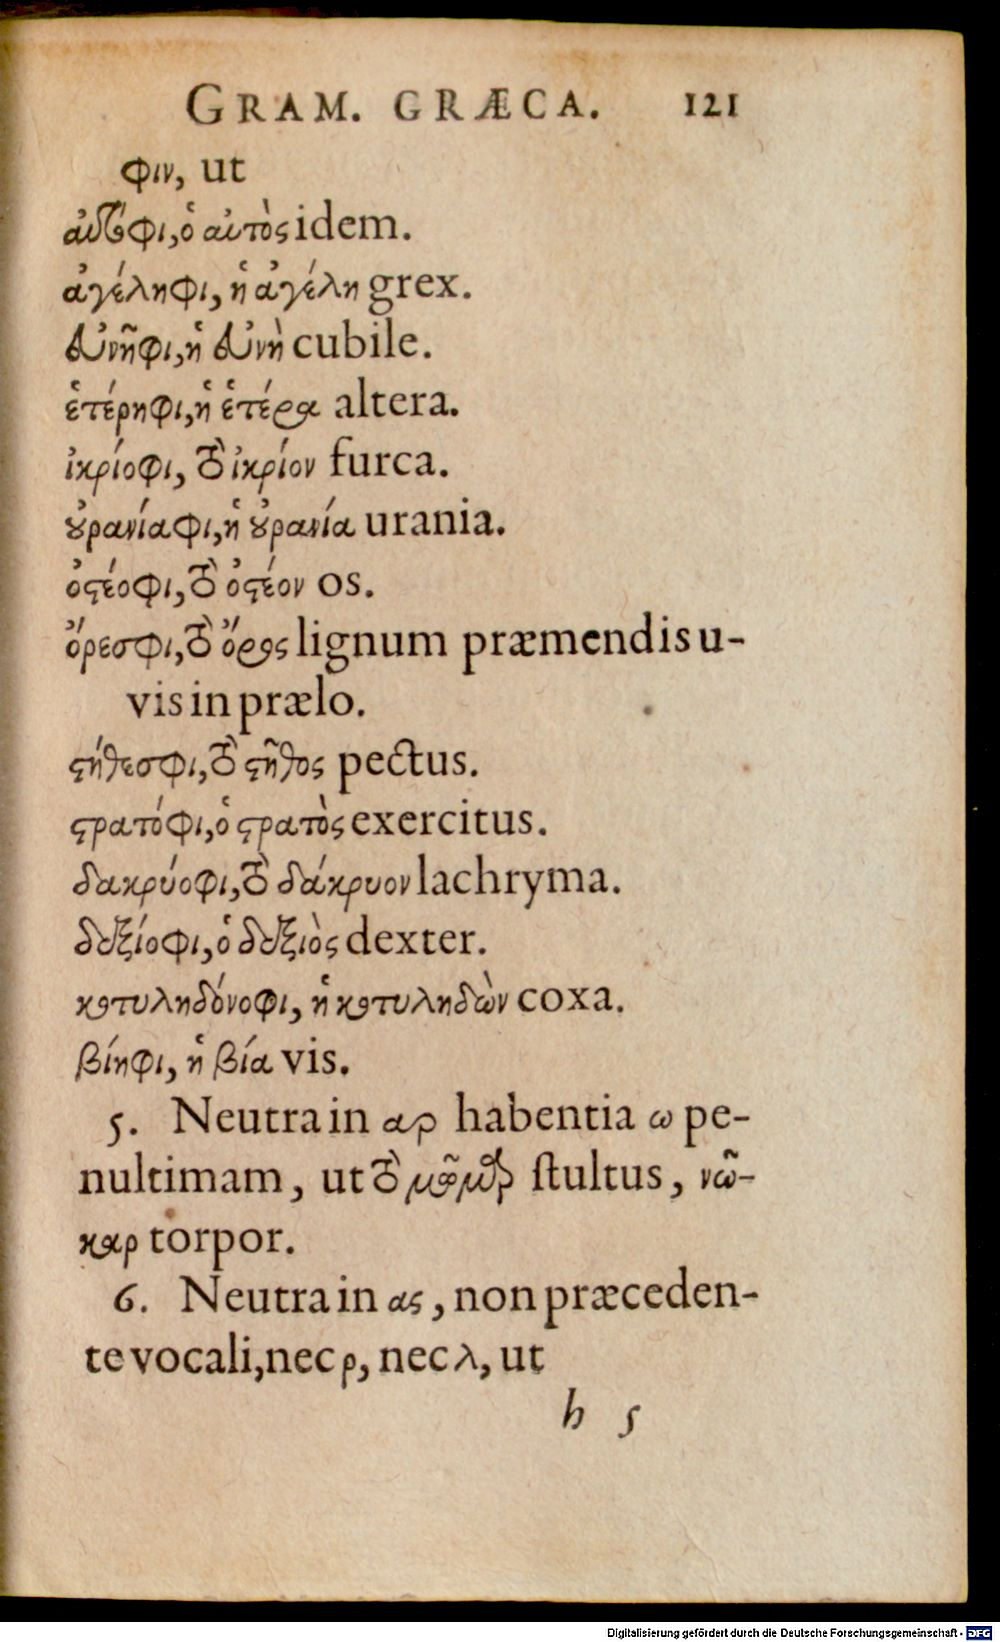 GRAM. GRÆCA. 121
φιν, ut
αὐτόφι, ὁ αὐτὸς idem.
ἀγέληφι, ἡ ἀγέλη grex.
εὐνῆφι, ἡ εὐνὴ cubile.
ἑτέρηφι, ἡ ἑτέρα altera.
ἰκριόφι, τὸ ἰκρίον furca.
ȣ̓ρανίαφι, ἡ ȣ̓ρανία urania.
ὀϛέοφι, τὸ ὀϛέον os.
ὄρεσφι, τὸ ὄρος lignum præmendis u-
vis in prælo.
ϛήθεσφι, τὸ ϛῆθος pectus.
ϛρατόφι, ὁ ϛρατὸς exercitus.
δακρύοφι, τὸ δάκρυον lachryma.
δεξίοφι, ὁ δεξιὸς dexter.
κοτυληδόνοφι, ἡ κοτυληδὼν coxa.
βίηφι, ἡ βία vis.
5. Neutra in αρ habentia ω pe-
nultimam, ut τὸ μῶμαρ stultus, νῶ-
καρ torpor.
6. Neutra in ας, non præceden-
te vocali, nec ρ, nec λ, ut
h 5
Digitalisierung gefördert durch die Deutsche Forschungsgemeinschaft - DFG